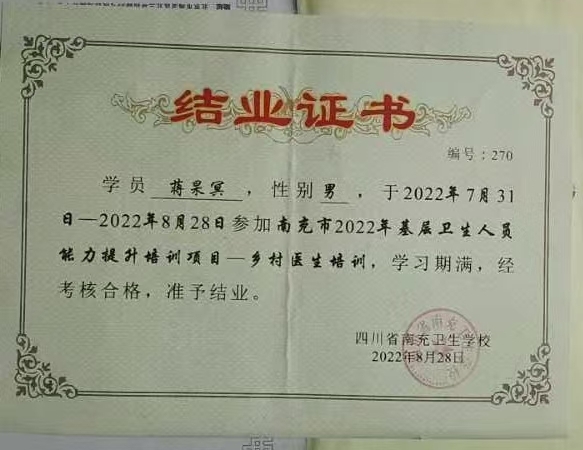 结业证书
编号：270
学员 蒋果冥 ，性别 男 ，于2022年7月31
日—2022年8月28日参加南充市2022年基层卫生人员
能力提升培训项目—乡村医生培训，学习期满，经
考核合格，准予结业。
四川省南充卫生学校
2022年8月28日